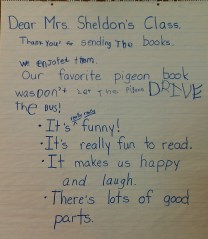 Dear Mrs. Sheldon's Class.
Thank you for sending The books.
We enjoyed them.
Our favorite pigeon book
was Don't Let The Pigeon DRIVE
the BUS!
• It's funny!
• It's really fun to read.
• It makes us happy
and laugh.
• There's lots of good
parts.